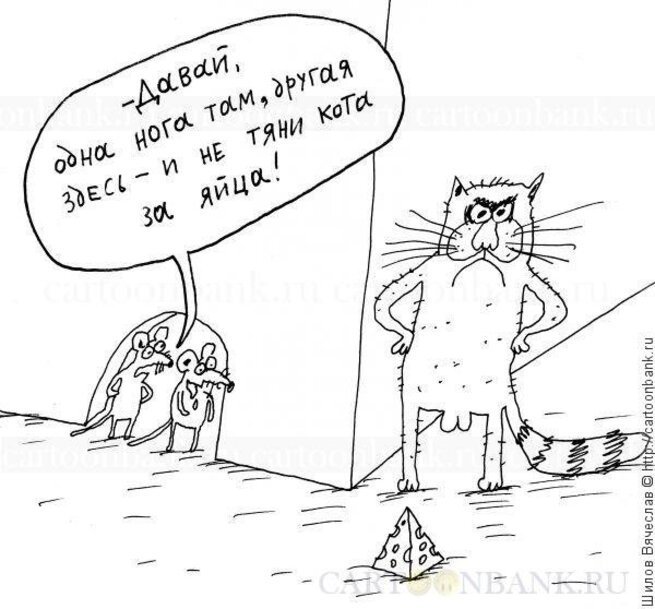 -Давай,
одна нога там, другая
здесь - и не тяни кота
за яйца!
cartoonbank.ru cartoonbank.ru
cartoonbank.ru cartoonbank.ru
cartoonbank.ru cartoonbank.ru
CARTOONBANK.RU
Шилов Вячеслав © http://cartoonbank.ru